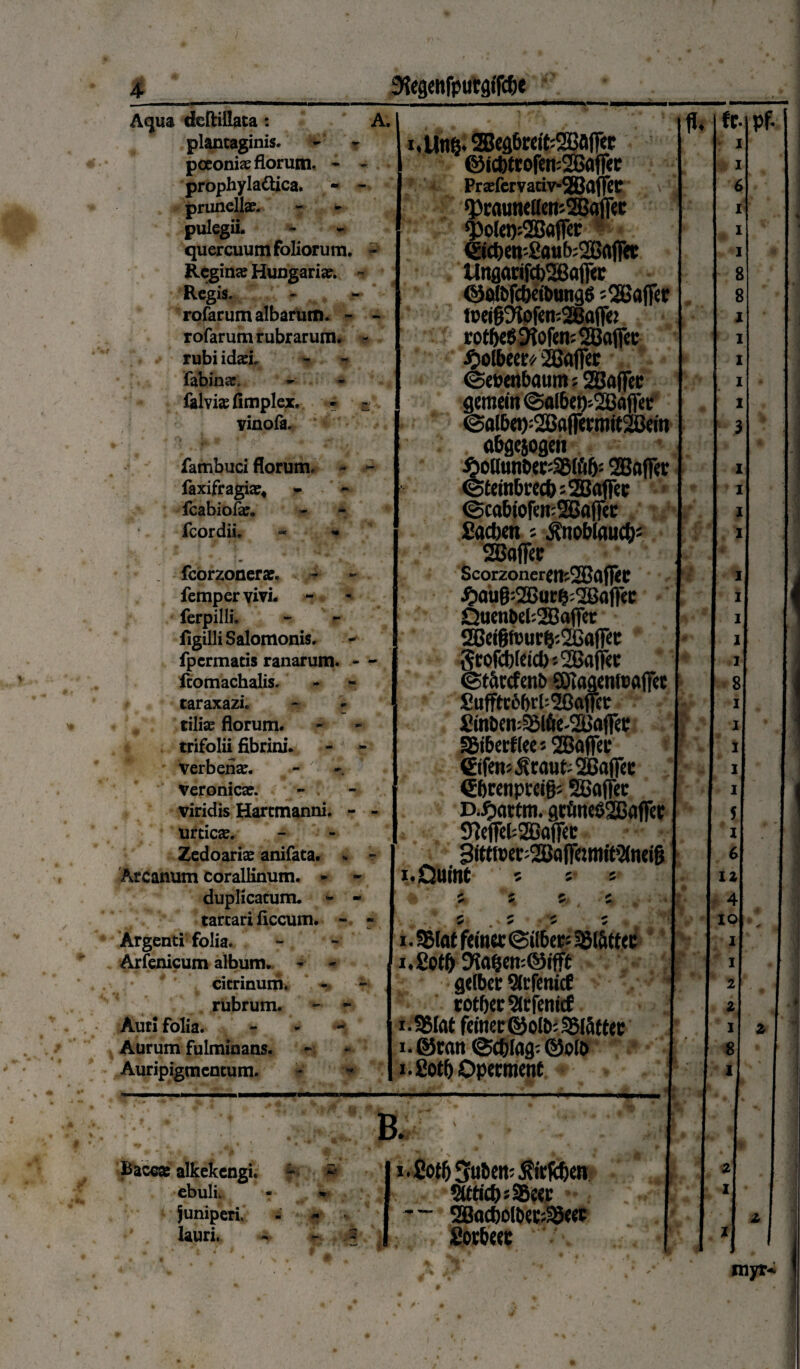 4 Regenſpurgiſche
Aqua deſtillata : A. fl. kr. pf.
plantaginis. - - 1. Untz. Wegbreit-Waſſer 1
pœoniæ florum. - - Gichtroſen-Waſſer 1
prophylactica. - - Præſervativ-Waſſer 6
prunellæ. - - Praunellen-Waſſer 1
pulegii. - - Poley-Waſſer 1
quercuum foliorum. - Eichen-Laub-Waſſer 1
Reginæ Hungariæ. - Ungariſch Waſſer 8
Regis. - - Goldſcheidungs-Waſſer 8
roſarum albarum. - - weiß Roſen-Waſſer 1
roſarum rubrarum. - rothes Roſen-Waſſer 1
rubi idæi. - - Holbeer-Waſſer 1
ſabinæ. - - Sevenbaum-Waſſer 1
ſalviæ ſimplex. - - gemein Salbey-Waſſer 1
vinoſa. Salbey-Waſſer mit Wein 3
abgezogen
ſambuci florum. - - Hollunder-Blüh-Waſſer 1
ſaxifragiæ, - - Steinbrech-Waſſer 1
ſcabioſæ. - - Scabioſen-Waſſer 1
ſcordii. - - Lachen-Knoblauch- 1
Waſſer
ſcorzoneræ. - - Scorzoneren-Waſſer 1
ſemper vivi. - - Hauß-Wurtz-Waſſer 1
ſerpilli. - - Quendel-Waſſer 1
ſigilli Salomonis. - Weißwurtz-Waſſer 1
ſpermatis ranarum. - - Froſchleich-Waſſer 1
ſtomachalis. - - Stärckend Magenwaſſer 8
taraxazi. - - Lufftröhrl-Waſſer 1
tiliæ florum. - - Linden-Blüe-Waſſer 1
trifolii fibrini. - - Biberklee-Waſſer 1
verbenæ. - - Eiſen-Kraut-Waſſer 1
veronicæ. - - Ehrenpreiß-Waſſer 1
viridis Hartmanni. - - D. Hartm. grünes Waſſer 5
urticæ. - - Neſſel-Waſſer 1
Zedoariæ aniſata. - - Zittwer-Waſſer mit Aneiß 6
Arcanum corallinum. - - 1. Quint - - - 12
duplicatum. - - - - - - 4
tartari ſiccum. - - - - - - 10
Argenti folia. - - 1. Blat feiner Silber-Blätter 1
Arſenicum album. - - 1. Loth Ratzen-Gifft 1
citrinum. - - gelber Arſenick 2
rubrum. - - rother Arſenick 2
Auri folia. - - - 1. Blat feiner Gold-Blätter 1 2
Aurum fulminans. - - 1. Gran Schlag-Gold 8
Auripigmentum. - - 1. Loth Operment 1
B.
Baccæ alkekengi. - - 1. Loth Juden-Kirſchen 2
ebuli. - - Attich-Beer 1
juniperi. - - -- Wacholder-Beer 2
lauri. - - - Lorbeer 1
myr-